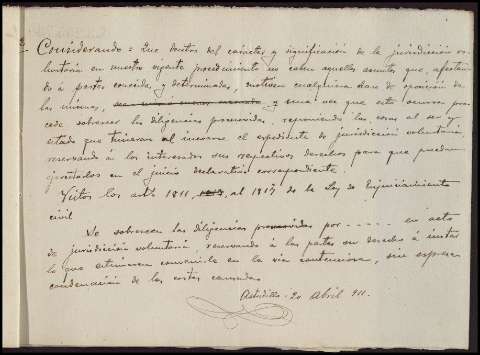 Considerando: Que dentro del carácter y significación de la jurisdicción vo-
luntaria en nuestro vigente procedimiento no caben aquellos asuntos que, afectan-
do á partes conocidas y determinadas, motiven cualquiera clase de oposición de
las mismas, y una vez que esto ocurra pro-
cede sobreseer las diligencias promovidas, reponiendo las cosas al ser y
estado que tuvieran al incoarse el expediente de jurisdicción voluntaria,
reservando á los interesados sus respectivos derechos para que puedan
ejercitarlos en el juicio declarativo correspondiente.
Vistos los artºs 1811, 1813, al 1817 de la Ley de Enjuiciamiento
civil
Se sobreseen las diligencias promovidas por - - - - - en acto
de jurisdicción voluntaria reservando á las partes su derecho á instar
lo que estimaren convenirle en la vía contenciosa, sin expresa
condenación de las costas causadas
Astudillo - 20 Abril 911.